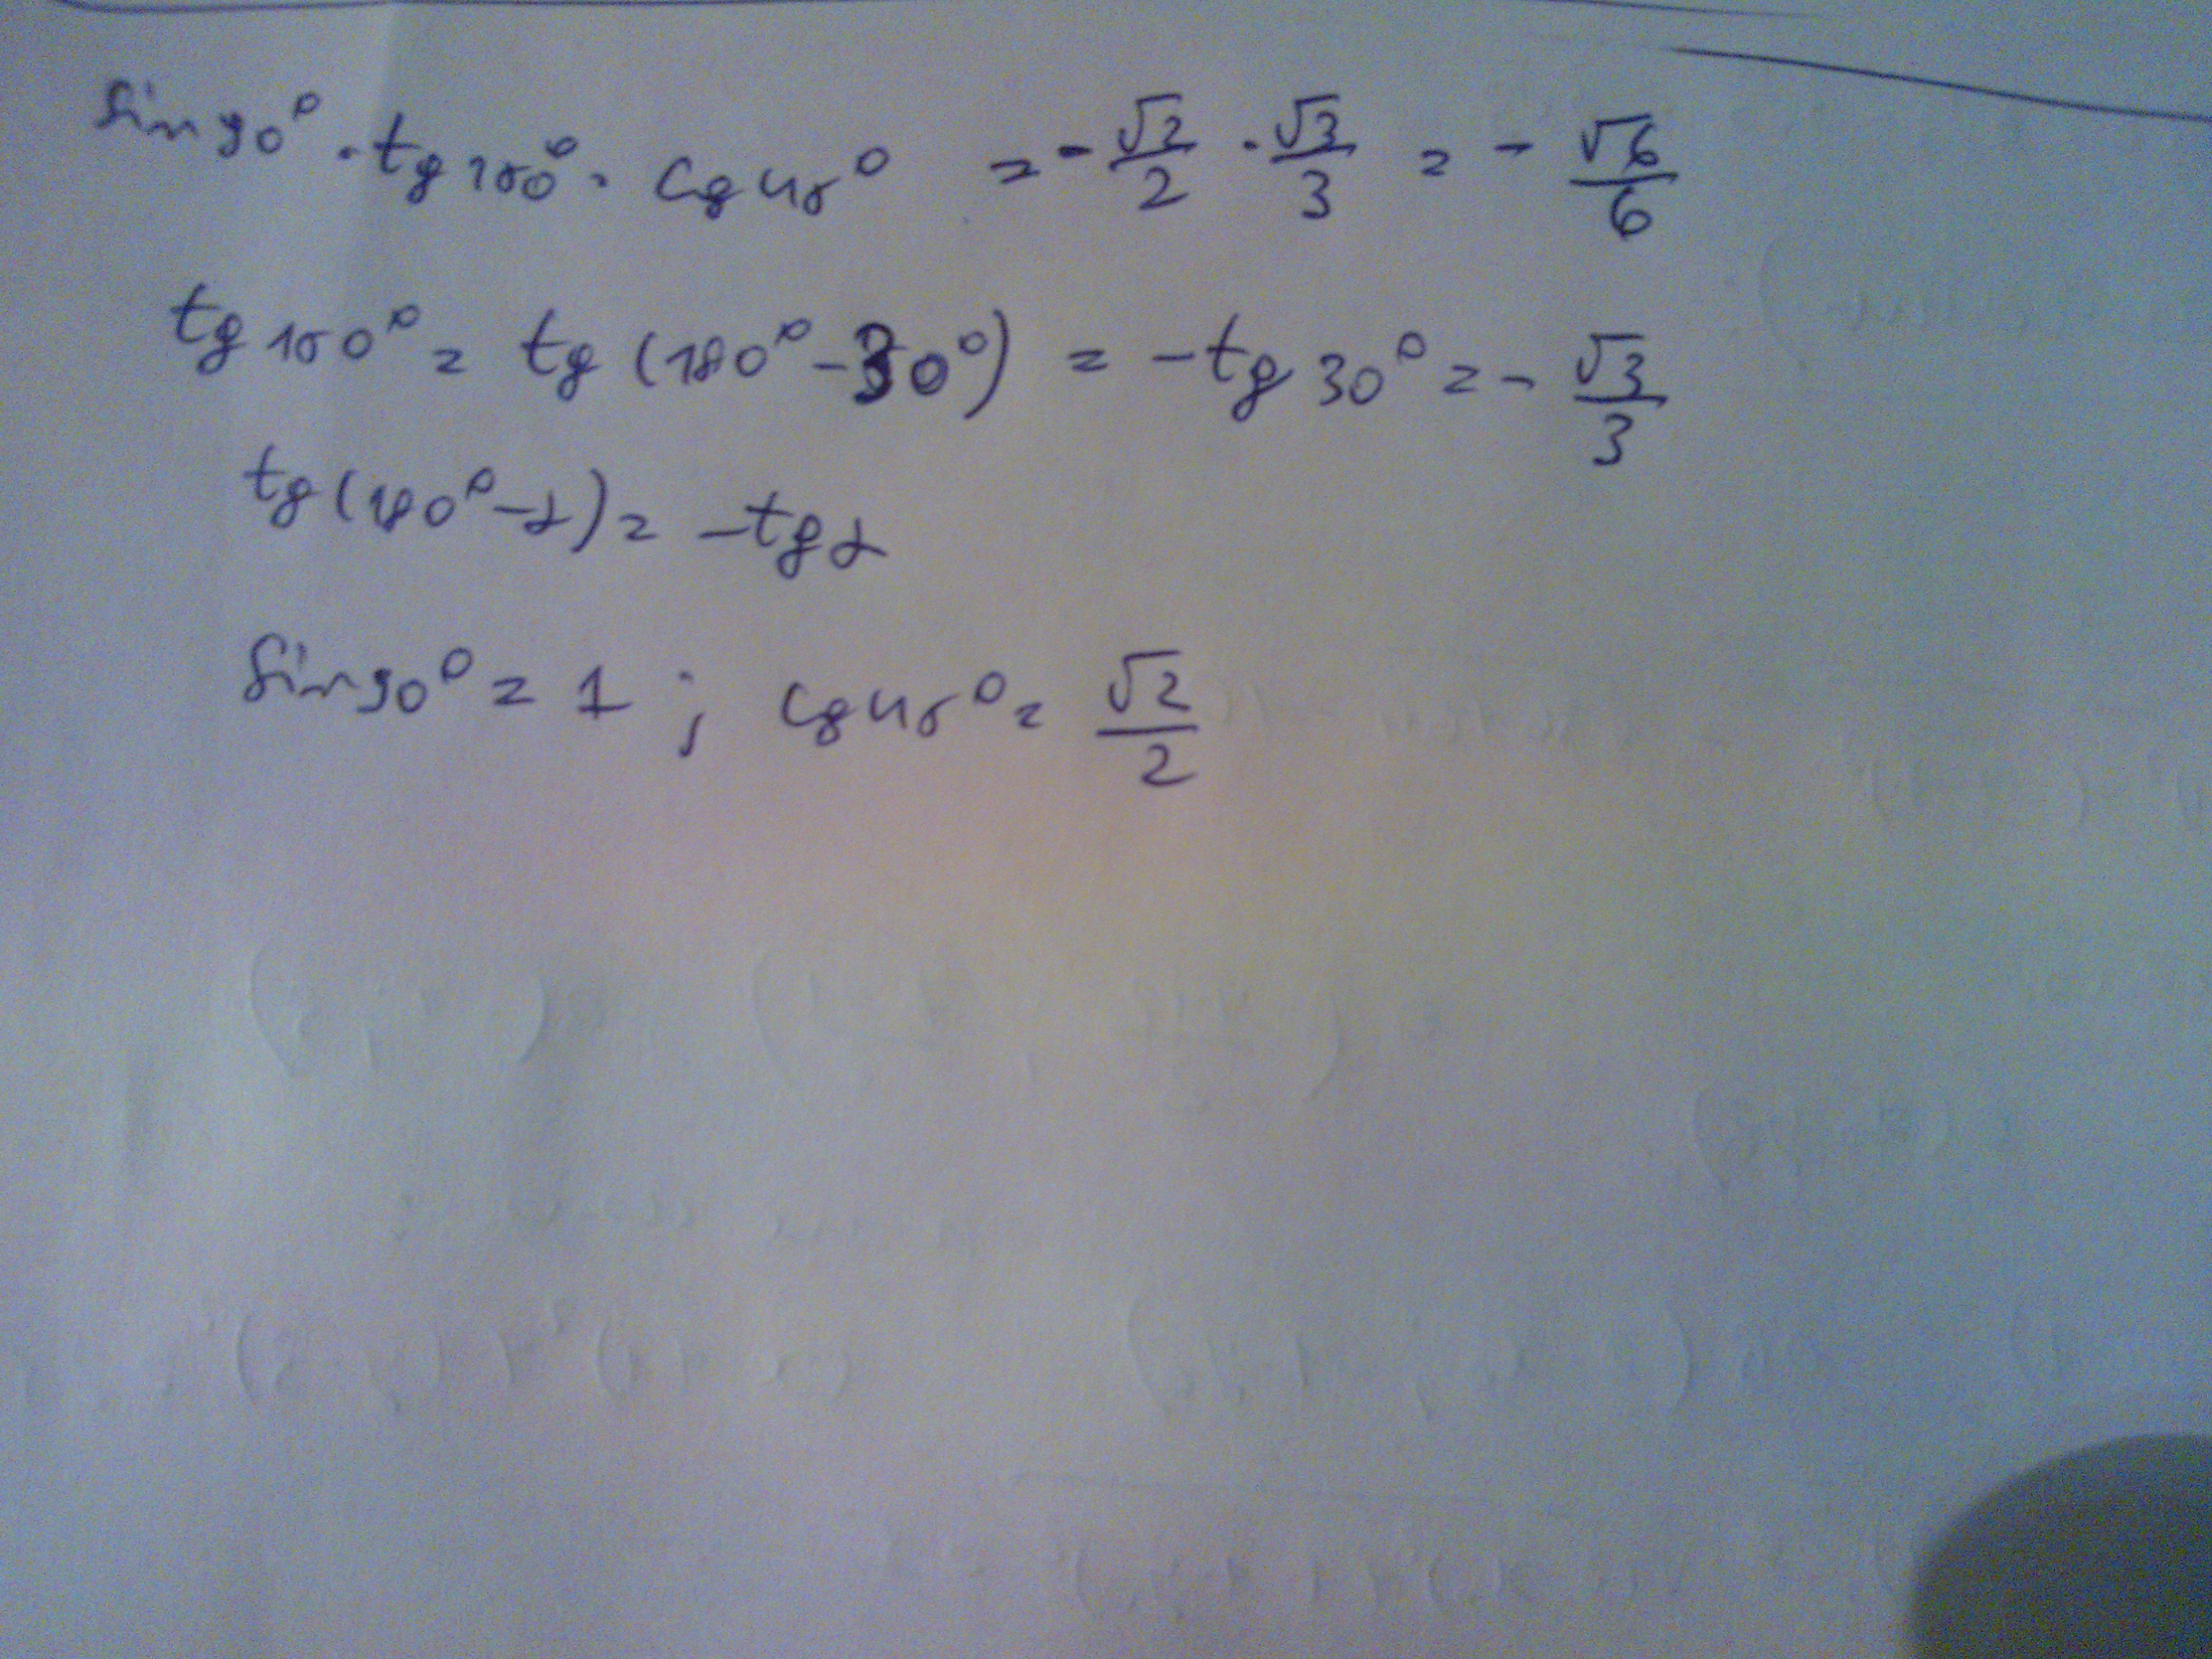 sin 90° · tg 150° · cg 45° = - √2/2 · √3/3 = - √6/6
tg 150° = tg (180° - 30°) = - tg 30° = - √3/3
tg (180° - α) = - tg α
sin 90° = 1 ; cg 45° = √2/2